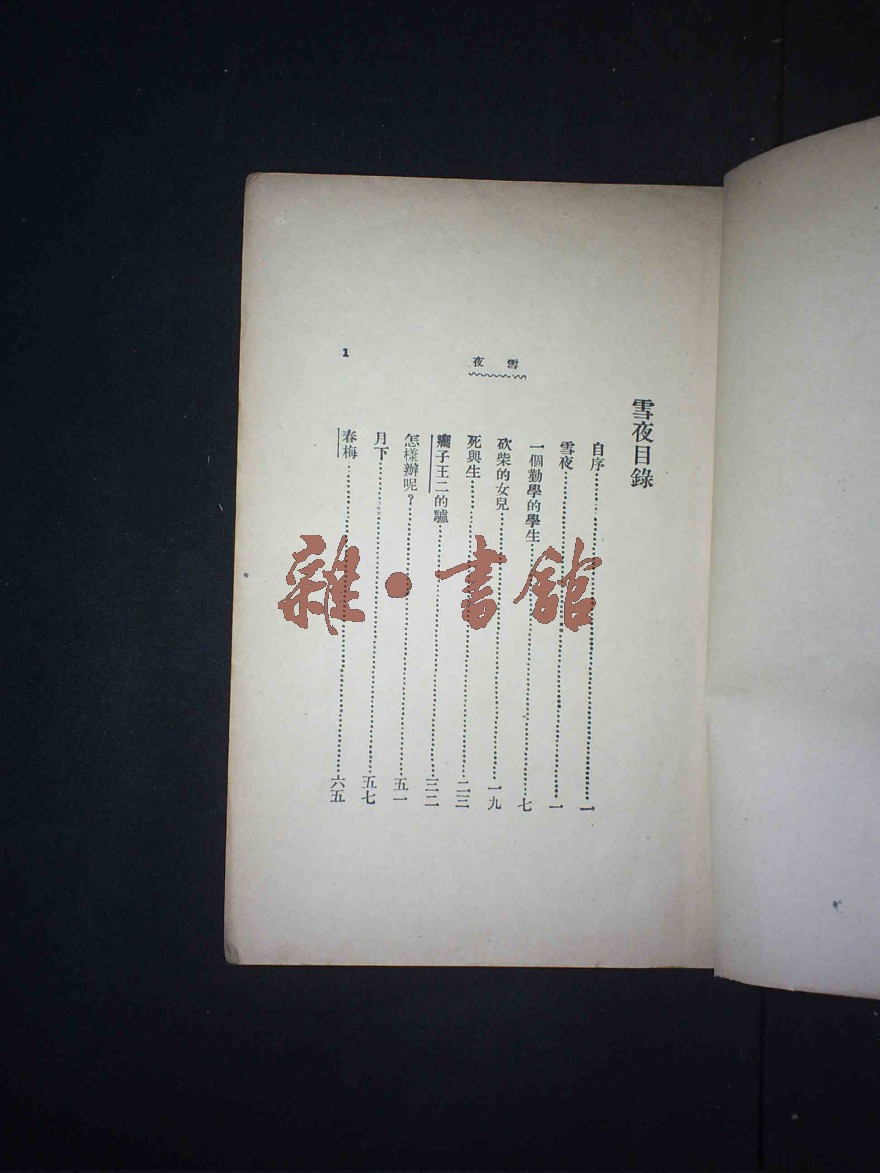 雪夜目錄
自序 一
雪夜 一
一個勤學的學生 七
砍柴的女兒 一九
死與生 二三
瘸子王二的驢 三二
怎樣辦呢？ 五一
月下 五七
春梅 六五
雪夜
1
雜·書館